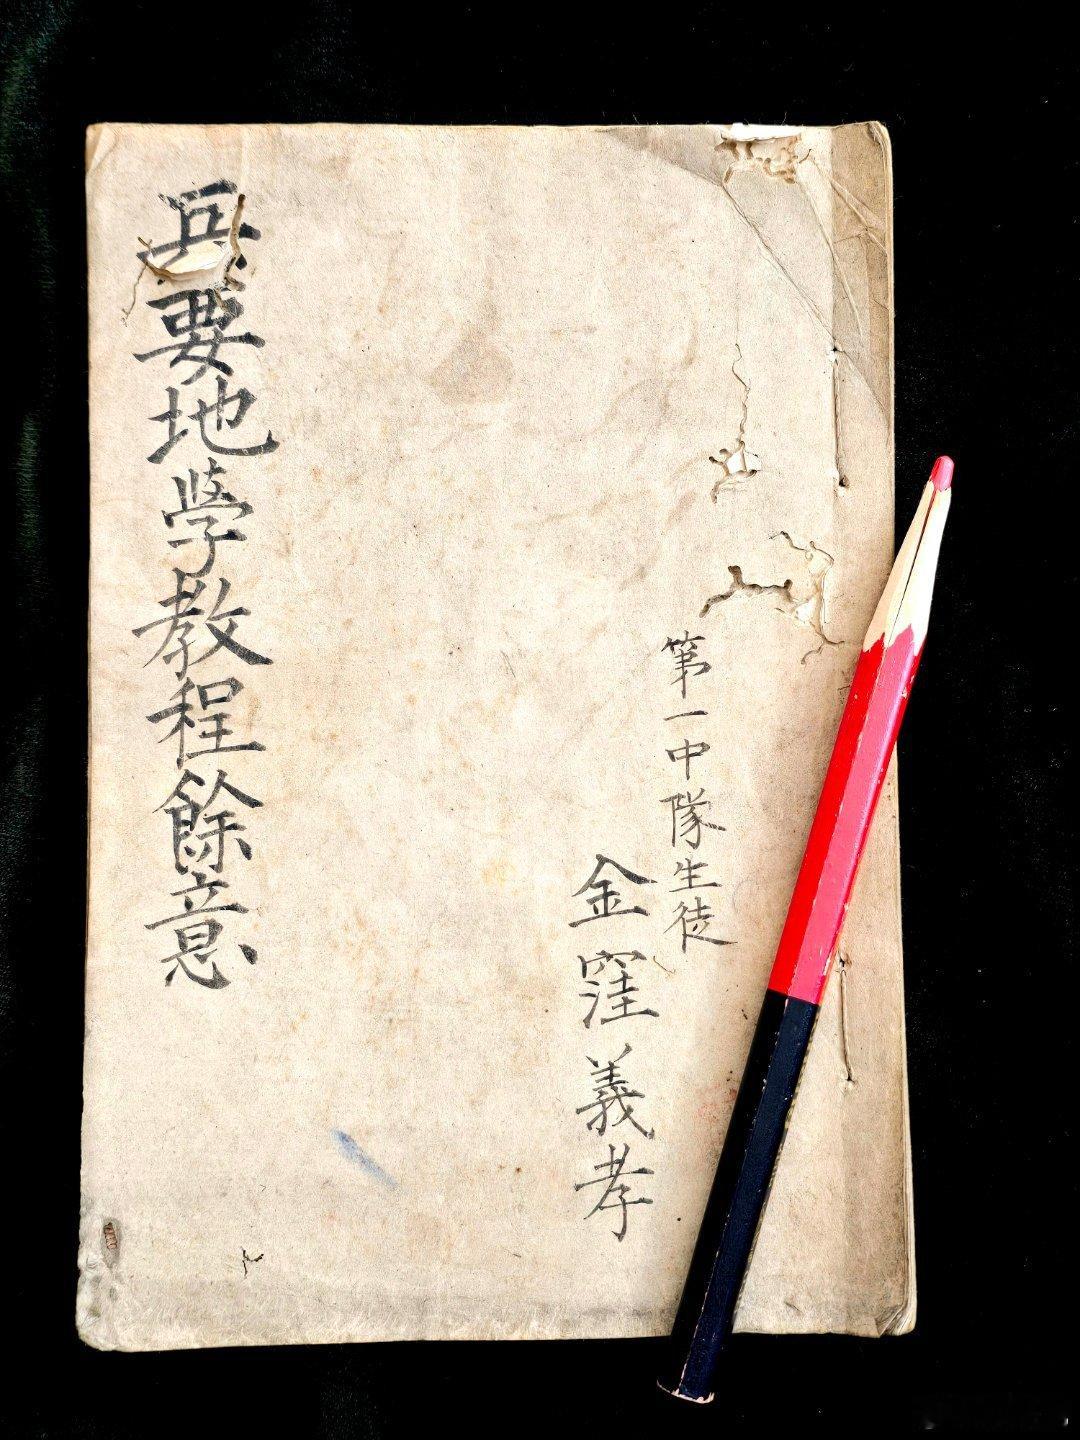 第一中隊生徒
金窪義孝
兵要地學教程餘意